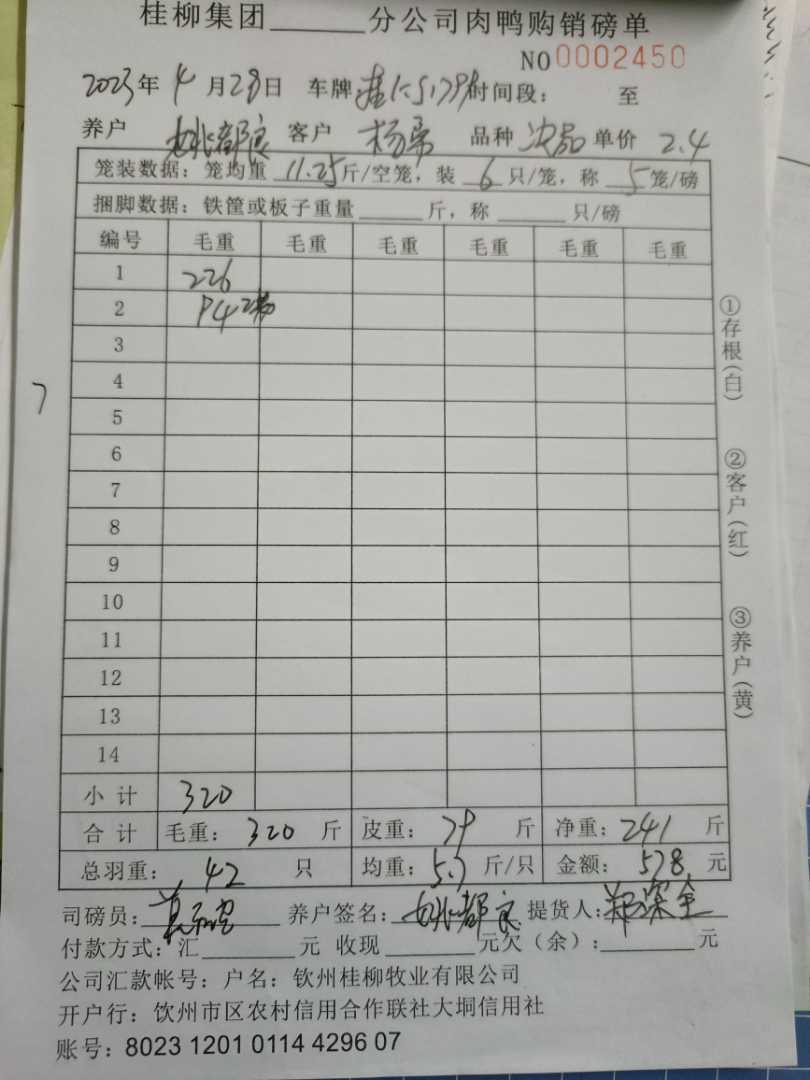 桂柳集团______分公司肉鸭购销磅单
NO 0002450
2023年 4月28日 车牌 时间段： 至
养户 姚都良 客户 杨 品种 次品 单价 2.4
笼装数据：笼均重 11.25斤/空笼，装 6 只/笼，称 5 笼/磅
捆脚数据：铁筐或板子重量______斤，称______只/磅
编号 毛重 毛重 毛重 毛重 毛重 毛重
1 226
2 94 2笼
3
4
5
6
7
8
9
10
11
12
13
14
小计 320
合计 毛重：320 斤 皮重：79 斤 净重：241 斤
总羽重：42 只 均重：5.7 斤/只 金额：578 元
司磅员： 养户签名：姚都良 提货人：郑深全
付款方式：汇______元 收现______元欠（余）：______元
公司汇款帐号：户名：钦州桂柳牧业有限公司
开户行：饮州市区农村信用合作联社大垌信用社
账号：8023 1201 0114 4296 07
①存根（白）
②客户（红）
③养户（黄）
7